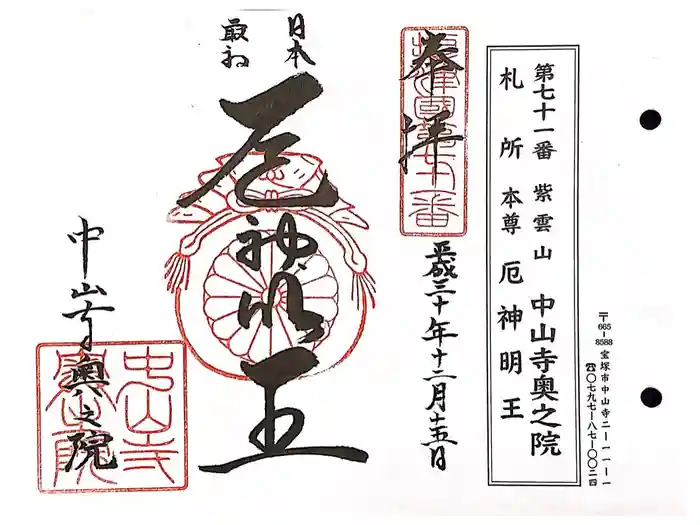 第七十一番 紫雲山 中山寺奥之院
札所本尊 厄神明王
〒665-8588 宝塚市中山寺二ー一一ー一
☎〇七九七ー八七ー〇〇二四
奉拝
摂津國第七十一番
平成三十年十二月十五日
日本
最初
厄神明王
中山寺奥之院
中山寺
奥之院